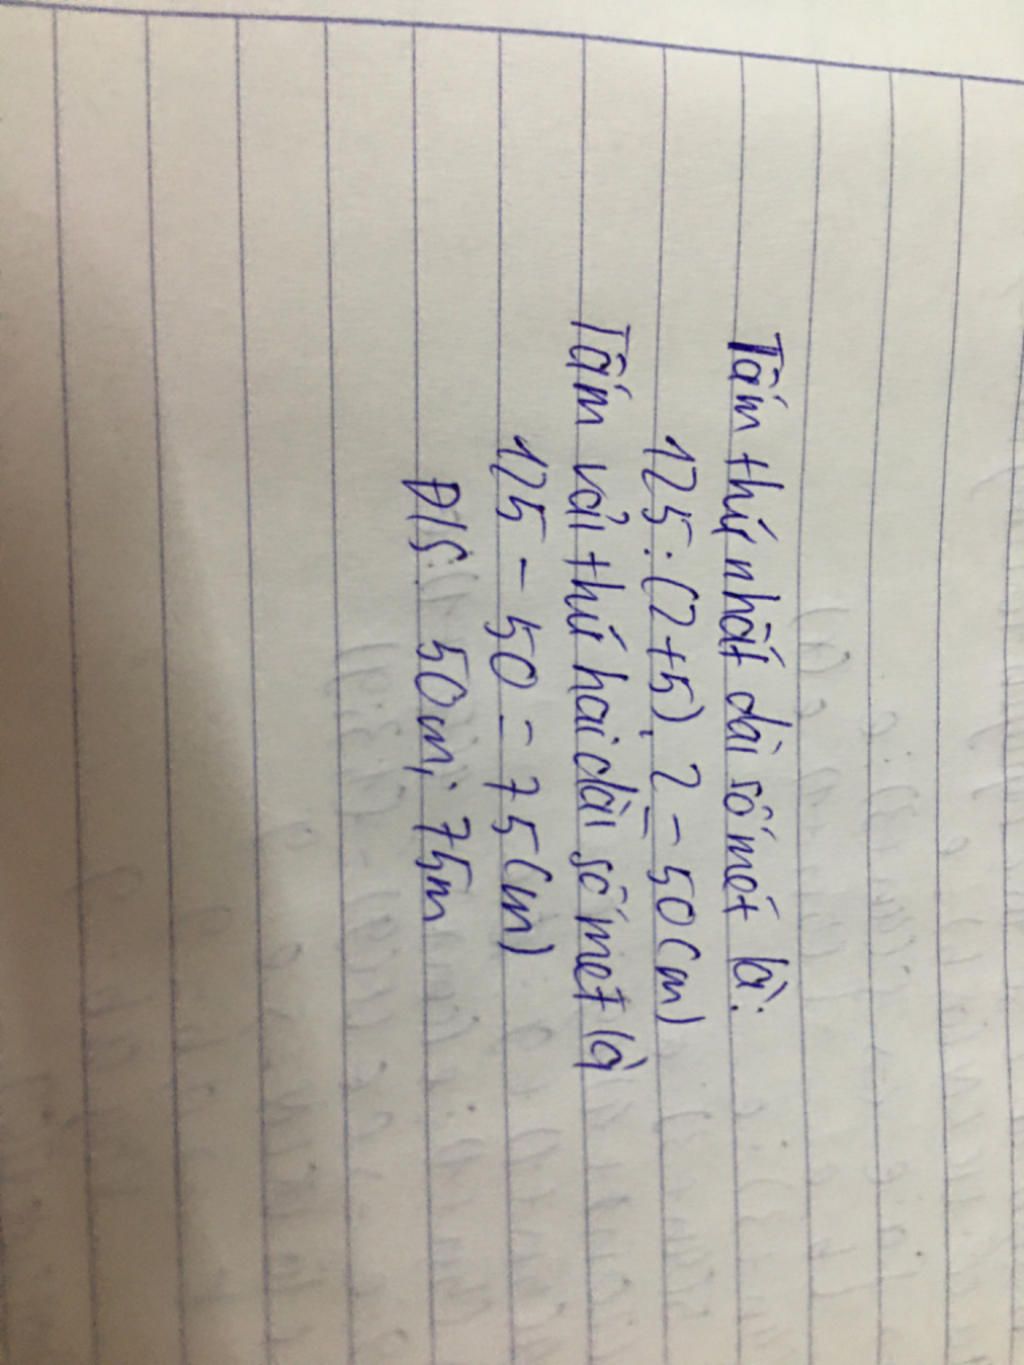 Tấm thứ nhất dài số mét là:
125 : (2+5). 2 = 50 (m)
Tấm vải thứ hai dài số met là
125 - 50 = 75 (m)
Đ/S: 50m; 75m